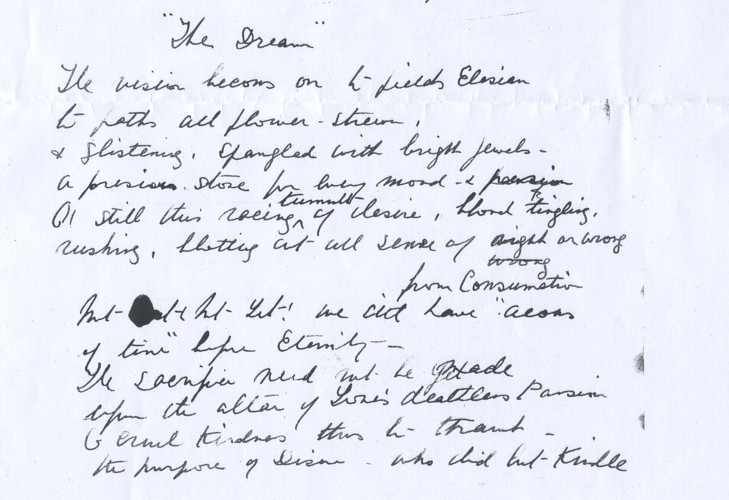 "The Dream"
The vision becons on to fields Elesian
to paths all flower-strewn,
& glistening, spangled with brigth jewels -
a presious stone for every mood - & passion
O! still this racing tumult of desire, blood tingling,
rushing, blotting out all sense of right or wrong
wrong
from Consumation
Not - Not Yet! we did have "aeons
of time" before Eternity -
The sacrifice need not be made
upon the altar of Love's deathless Passion
O cruel Kindness thus to thwart -
the purpose of Desire - who did but Kindle